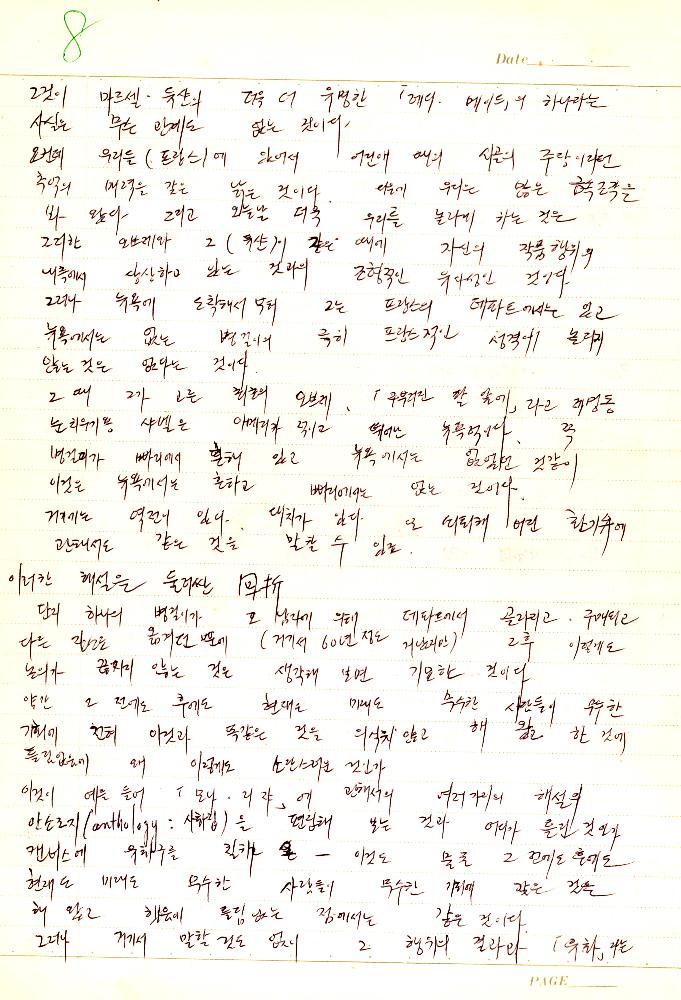 8
Date
그것이 마르셀·듀샨의 더욱 더 유명한 「레디·메이드」의 하나라는
사실은 무슨 관계도 없는 것이다.
요컨데 우리들(프랑스)에 있어서 어린애 때의 시골의 주방이라던
추억의 매력을 갖은 낡은 것이다. 다음에 우리는 많은 금속조각을
봐 왔다 그리고 오늘날 더욱 우리를 놀라게 하는 것은
그러한 오브제와 그(듀샨)이 같은 때에 자신의 작품행위의
내측에서 하고 있는 것과의 조형적인 유사성인 것이다
그러나 뉴욕에 도착해서 부터 그는 프랑스의 데파트에서는 있고
뉴욕에서는 없는 병걸이의 극히 프랑스적인 성격에 놀라지
않는 것은 없다는 것이다.
그 때 그가 고른 최초의 오브제, 「부러진 팔 앞에」라고 제명된
눈치우기용 샤벨은 아메리카 적이고 뉴욕적이다. 꼭
병걸이가 빠리에서 흔해 있고 뉴욕에서는 없었던 것같이
이것은 뉴욕에서는 흔하고 빠리에서는 없는 것이다.
거기에는 역전이 있다. 대치가 있다. 또 어떤 환기力에
관해서도 같은 것을 말할 수 있고.
이러한 해설을 둘러싼 回折
단지 하나의 병걸이가 그 남자에 의해 데파트에서 골라지고·구매되고
다른 장소로 옮겨진 때문에 (거기서 60년 정도 지났지만) 그후 이렇게도
논의가 끊이지 않는 것은 생각해 보면 기묘한 것이다
약간 그 전에도 후에도 현재도 미래도 무수한 사람들이 무수한
기회에 전혀 이것과 똑같은 것을 의식치 않고 해 왔고 한 것에
틀림없는데 왜 이렇게도 소란스러운 것인가
이것이 예를 들어 「모나·리자」에 관해서의 여러가지의 해설의
안소로지(anthology : 사화집)을 편집해 보는 것과 어디가 틀린 것인가
캔버스에 유화구를 칠하는 — 이것도 물론 그 전에도 후에도
현재도 미래도 무수한 사람들이 무수한 기회에 같은 것을
해 왔고 했음에 틀림 없는 점에서는 같은 것이다.
그러나 거기서 말할 것도 없이 그 행위의 결과와 「유화」라는
PAGE